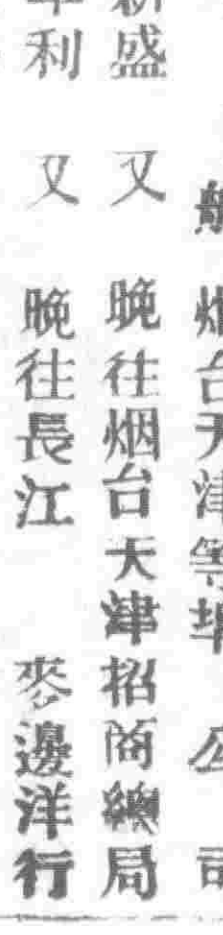 烟台天津等埠 公司
新盛 又 晚往烟台天津 招商總局
利 又 晚往長江 麥邊洋行